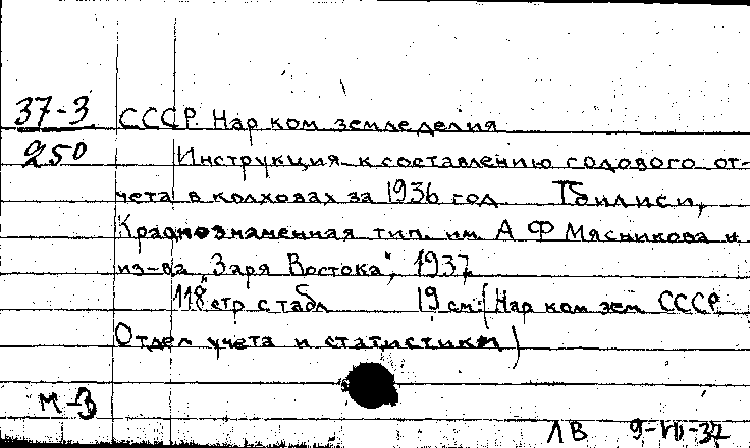 37-3 СССР. Нар ком земледелия
250 Инструкция к составлению годового от-
чета в колховах за 1936 год Тбилиси,
Краснознаменная тип. им. А Ф Мясникова и
из-ва "Заря Востока", 1937
118 стр с табл 19 см. (Нар ком зем СССР.
Отдел учета и статистики)
М-3
ЛВ 9-VII-37